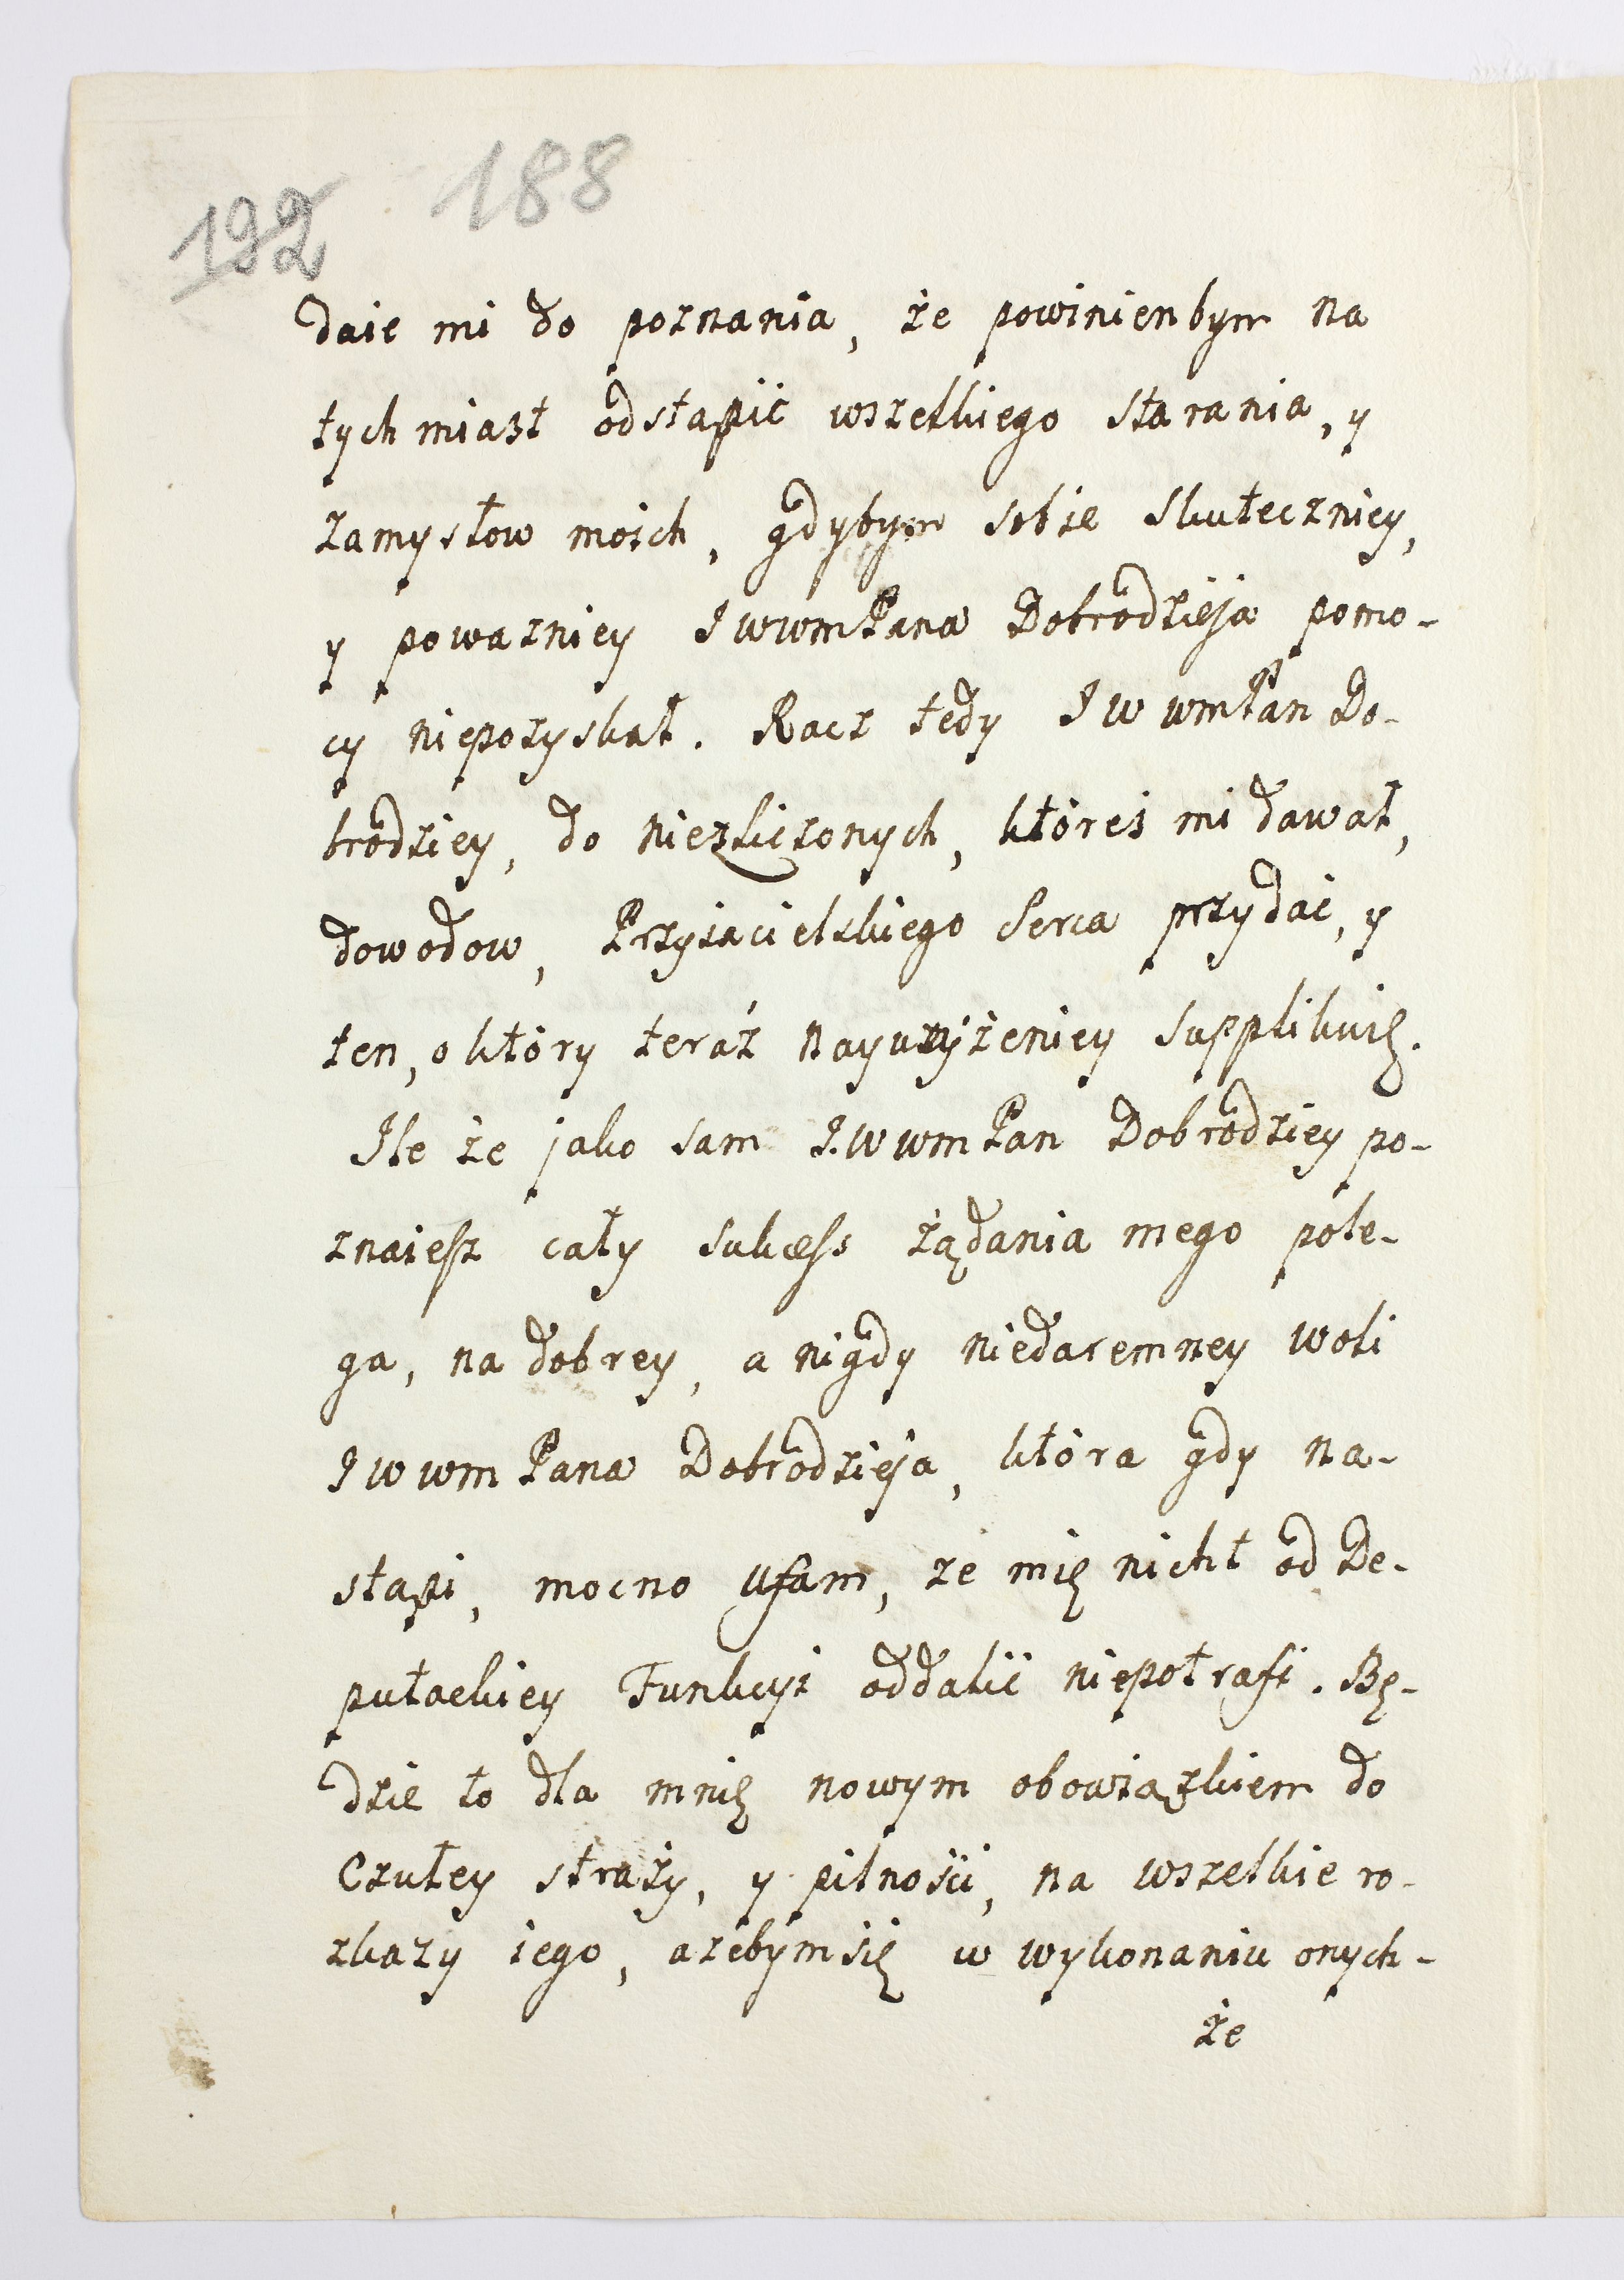 192 188
daie mi do poznania, że powinienbym na
tychmiast odstąpić wszelkiego starania, y
zamysłow moich, gdybym sobie skuteczniey,
y powazniey JWWmPana Dobrodzieja pomo-
cy niepozyskał. Racz tedy JWWmPan Do-
brodziey, do niezliczonych, któreś mi dawał,
dowodow, Przyiacielskiego Serca przydać, y
ten, o który teráz nayuniżeniey supplikuię.
Ile że jako sam J.WWmPan Dobrodziey po-
znaiesz cały sukcess żądania mego pole-
ga, na dobrey, a nigdy niedaremney woli
JWWmPana Dobrodzieja, która gdy na-
stąpi, mocno ufam, że mię nicht od De-
putackiey Funkcyi oddalić niepotrafi. Bę-
dzie to dla mnię nowym obowiązkiem do
Czułey straży, y pilności, na wszelkie ro-
zkazy iego, ażebym się w wykonaniu onych-
że